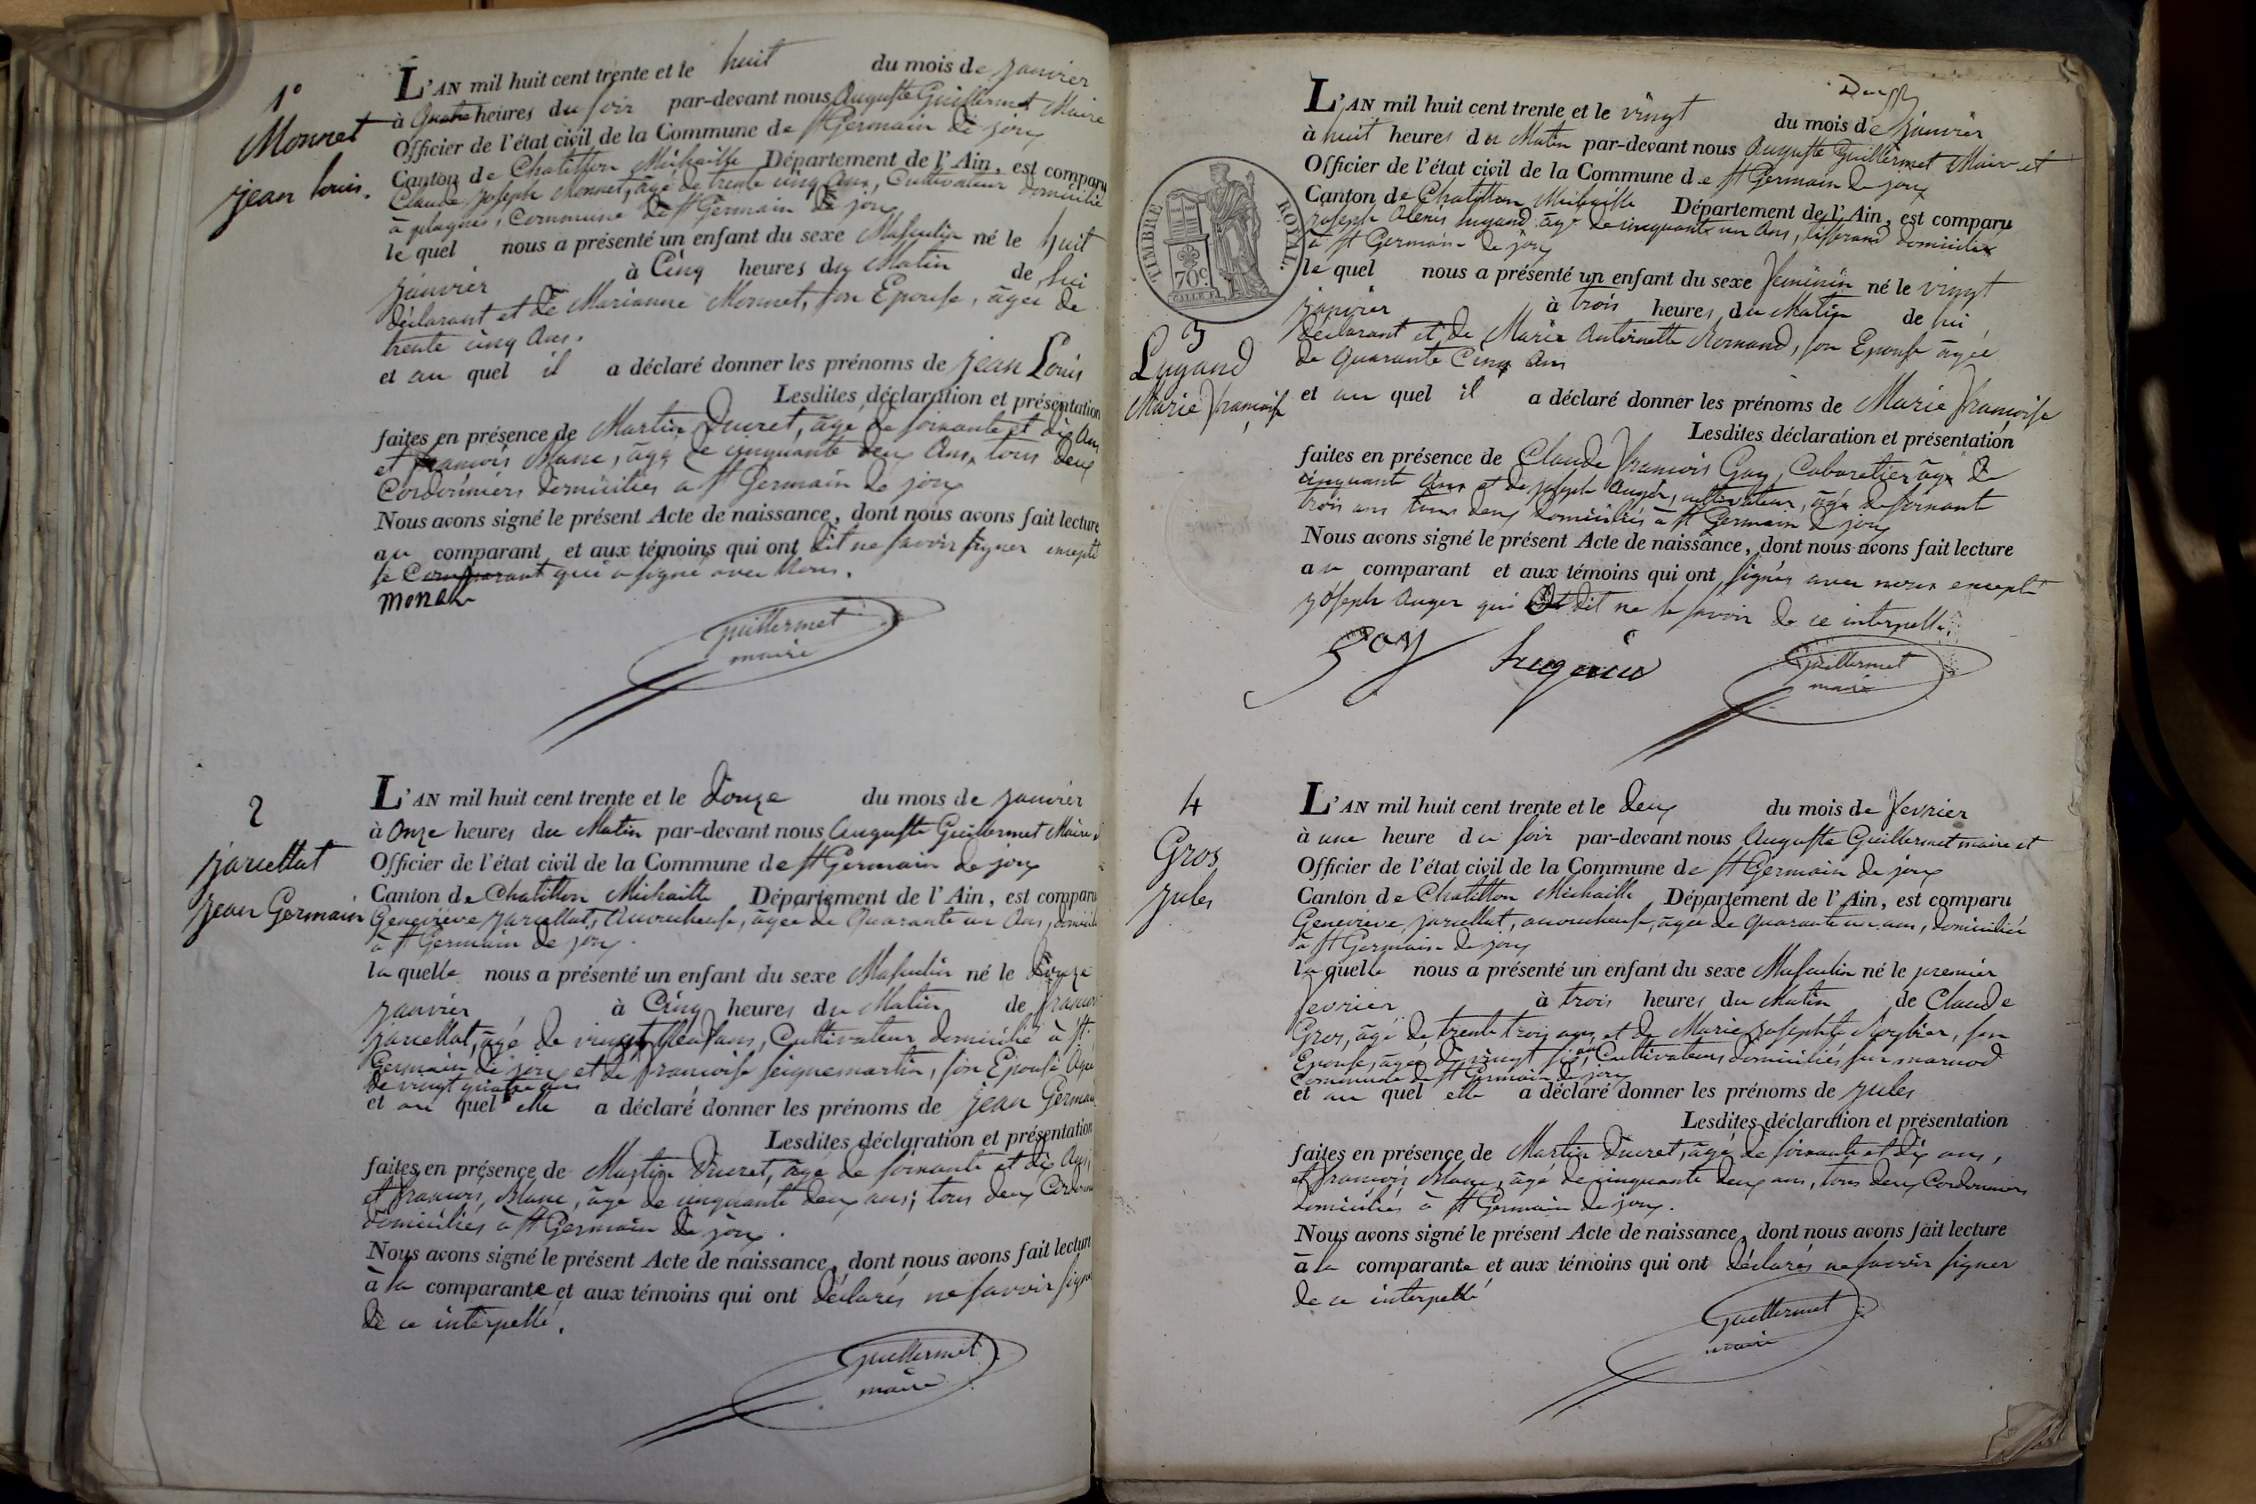 1°
Monnet
jean louis.
L'AN mil huit cent trente et le huit du mois de janvier
à Quatre heures du soir par-devant nous Auguste Guillermet Maire
Officier de l'état civil de la Commune de St Germain de joux
Canton de Chatillon Michaille Département de l'Ain, est comparu
Claude joseph Monnet, âgé de trente cinq Ans, Cultivateur domicilié
à plagnes, Commune de St Germain de joux
le quel nous a présenté un enfant du sexe Masculin né le huit
janvier à Cinq heures du Matin de lui
déclarant et de Marianne Monnet, son Epouse, âgée de
trente cinq Ans.
et au quel il a déclaré donner les prénoms de jean Louis
Lesdites déclaration et présentation
faites en présence de Martin Ducret, âgé de soixante et dix Ans
et francois Blanc, âgé de cinquante deux Ans, tous deux
Cordonniers domiciliés à St Germain de joux
Nous avons signé le présent Acte de naissance, dont nous avons fait lecture
au comparant et aux témoins qui ont dit ne savoir signer excepté
le Comparant qui a signé avec Nous.
Guillermet
maire
2
jarcellat
jean Germain
L'AN mil huit cent trente et le douze du mois de janvier
à Onze heures du Matin par-devant nous Auguste Guillermet Maire
Officier de l'état civil de la Commune de St Germain de joux
Canton de Chatillon Michaille Département de l'Ain, est comparu
Geneviève jarcellat, Accoucheuse, âgée de Quarante un Ans, domicilié
à St Germain de joux.
la quelle nous a présenté un enfant du sexe Masculin né le douze
janvier à Cinq heures du Matin de francois
jarcellat, âgé de vingt neuf ans, Cultivateur domicilié à St
Germain de joux et de francoise seignemartin, son Epouse Agée
de vingt quatre ans
et au quel elle a déclaré donner les prénoms de jean Germain
Lesdites déclaration et présentation
faites en présence de Martin Ducret, âgé de soixante et dix Ans,
et francois Blanc, âgé de cinquante deux ans; tous deux Cordonniers
domiciliés à St Germain de joux.
Nous avons signé le présent Acte de naissance, dont nous avons fait lecture
à la comparante et aux témoins qui ont déclarés ne savoir signer
de ce interpellé.
Guillermet
maire
TIMBRE ROYAL.
70c.
3
Lugand
Marie francoise
L'AN mil huit cent trente et le vingt du mois de janvier
à huit heures du Matin par-devant nous Auguste Guillermet Maire et
Officier de l'état civil de la Commune de St Germain de joux
Canton de Chatillon Michaille Département de l'Ain, est comparu
joseph Alexis Lugand âgé de cinquante un Ans, tisserand domicilié
à St Germain de joux
le quel nous a présenté un enfant du sexe féminin né le vingt
janvier à trois heures du Matin de lui
déclarant et de Marie Antoinette Romand, son Epouse âgée
de quarante Cinq Ans
et au quel il a déclaré donner les prénoms de Marie francoise
Lesdites déclaration et présentation
faites en présence de Claude francois Gay, Cabaretier âgé de
cinquante Ans et de joseph Auger, cultivateur, âgé de soixante
trois ans tous deux domiciliés à St Germain de joux
Nous avons signé le présent Acte de naissance, dont nous avons fait lecture
au comparant et aux témoins qui ont signés avec nous excepté
joseph Auger qui a dit ne le savoir de ce interpellé.
Gay
Guillermet
maire
4
Gros
jules
L'AN mil huit cent trente et le deux du mois de fevrier
à une heure du soir par-devant nous Auguste Guillermet maire et
Officier de l'état civil de la Commune de St Germain de joux
Canton de Chatillon Michaille Département de l'Ain, est comparu
Geneviève jarcellat, accoucheuse, âgée de quarante un ans, domiciliée
à St Germain de joux
la quelle nous a présenté un enfant du sexe Masculin né le premier
fevrier à trois heures du Matin de Claude
Gros, âgé de trente trois ans, et de Marie josephte, son
Epouse, âgée de vingt six ans, Cultivateurs, domiciliés sur marnod
Commune de St Germain de joux
et au quel elle a déclaré donner les prénoms de jules
Lesdites déclaration et présentation
faites en présence de Martin Ducret, âgé de soixante et dix ans,
et francois Blanc, âgé de cinquante deux ans, tous deux Cordonniers
domiciliés à St Germain de joux.
Nous avons signé le présent Acte de naissance, dont nous avons fait lecture
à la comparante et aux témoins qui ont déclarés ne savoir signer
de ce interpellé
Guillermet
maire